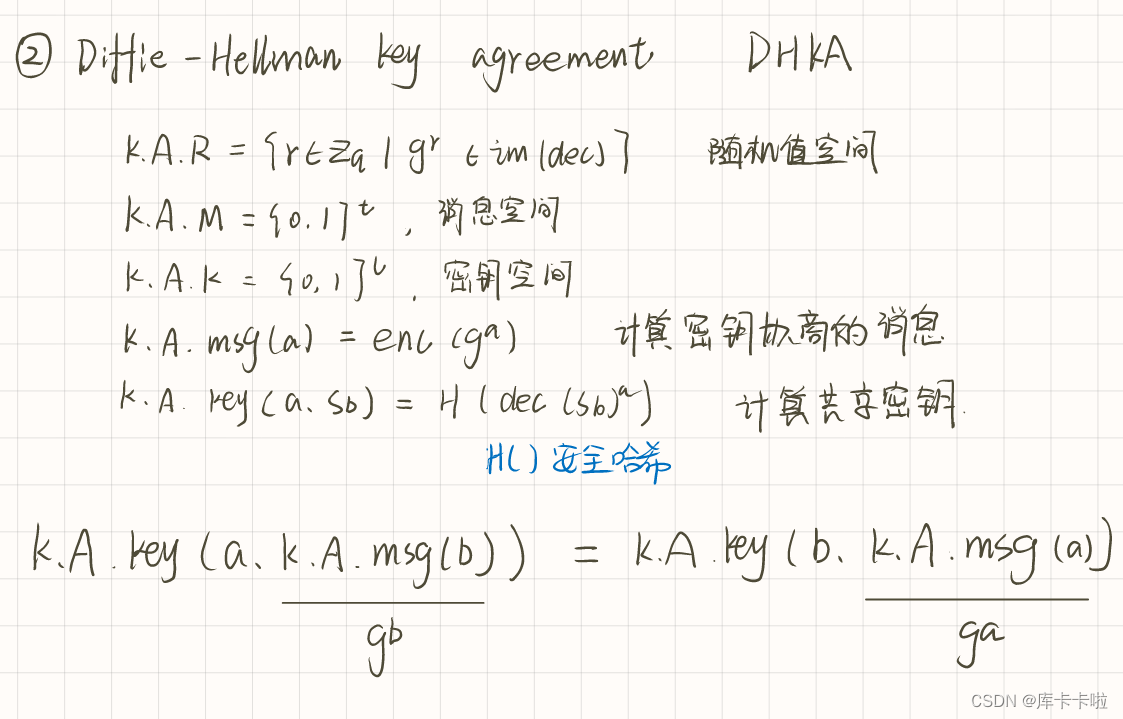 ② Diffie-Hellman key agreement DHKA
K.A.R = {r∈Zq | g^r ∈ im(dec)} 随机值空间
K.A.M = {0,1}^t, 消息空间
K.A.K = {0,1}^l, 密钥空间
K.A.msg(a) = enc(g^a) 计算密钥协商的消息
K.A.key(a、sb) = H(dec(sb)^a) 计算共享密钥.
H() 安全哈希
K.A.key(a、K.A.msg(b)) = K.A.key(b、K.A.msg(a))
g^b g^a
CSDN @库卡卡啦